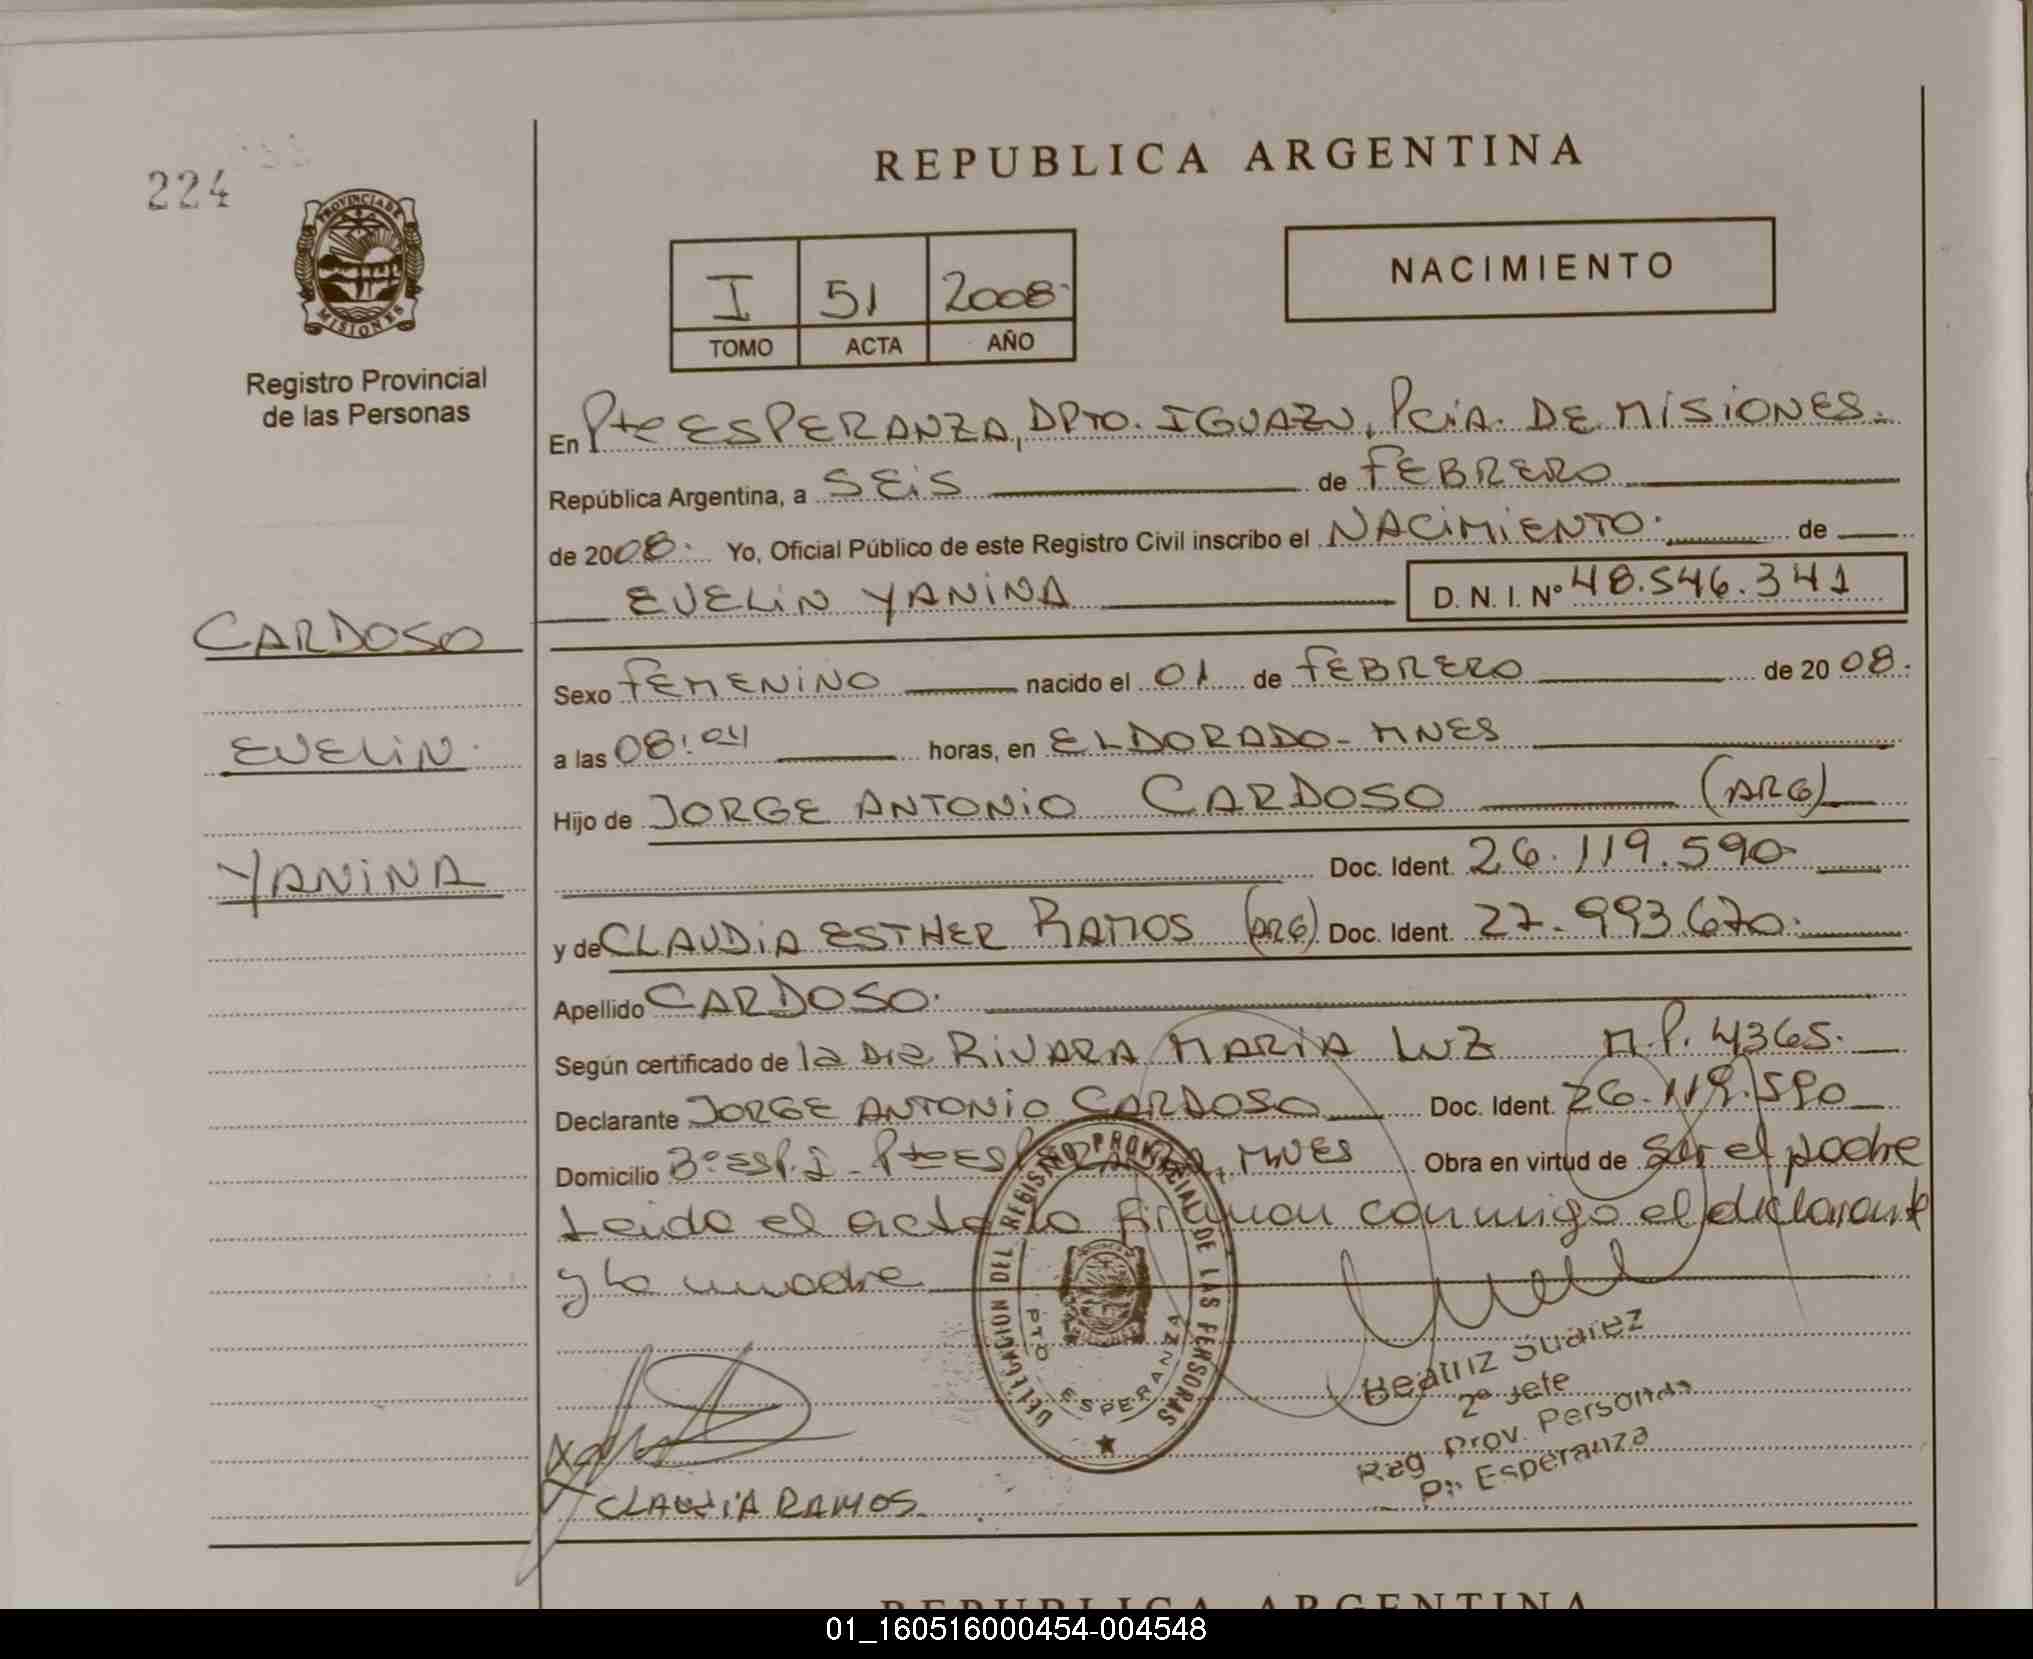 224
PROVINCIA DE
MISIONES
Registro Provincial
de las Personas
CARDOSO
EVELIN
YANINA
REPUBLICA ARGENTINA
I 51 2008
TOMO ACTA AÑO
NACIMIENTO
En Pto ESPERANZA, DPTO. IGUAZU, PCiA. DE MISIONES.
República Argentina, a SEIS de FEBRERO
de 2008. Yo, Oficial Público de este Registro Civil inscribo el NACIMIENTO. de
EVELIN YANINA D. N. I. Nº 48.546.341
Sexo FEMENINO nacido el 01 de FEBRERO de 2008.
a las 08:04 horas, en ELDORADO - MNES
Hijo de JORGE ANTONIO CARDOSO (ARG)
Doc. Ident. 26.119.590
y de CLAUDIA ESTHER RAMOS (ARG) Doc. Ident. 27.993.670.
Apellido CARDOSO.
Según certificado de la Dra RIVARA MARIA LUZ M.P. 4365.
Declarante JORGE ANTONIO CARDOSO Doc. Ident. 26.119.590
Domicilio Bº ESP. I - Pto ESPERANZA, MNES Obra en virtud de ser el padre
Leido el acta lo firman conmigo el declarante
y la madre
DELEGACION DEL REGISTRO PROVINCIAL DE LAS PERSONAS
PTO ESPERANZA
Beatriz Suarez
2º Jefe
Reg Prov. Personas
Pto Esperanza
CLAUDIA RAMOS
REPUBLICA ARGENTINA
01_160516000454-004548